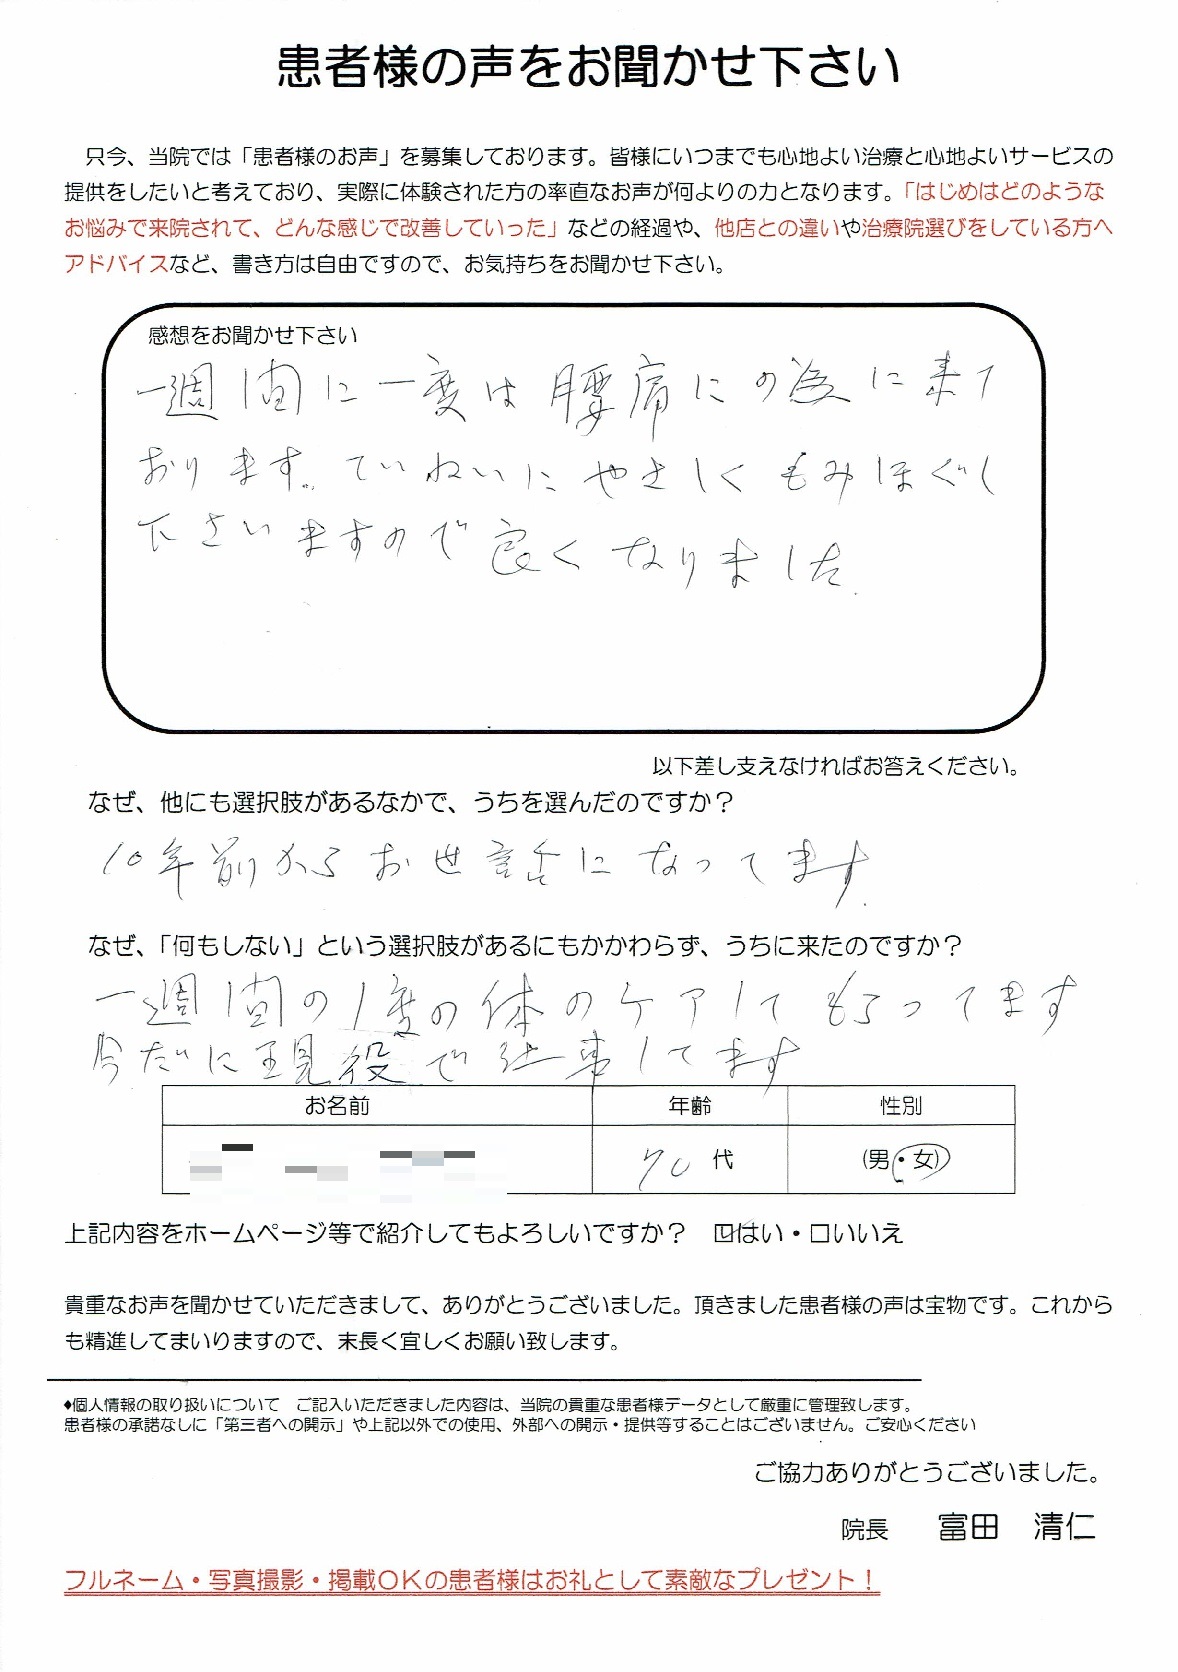 患者様の声をお聞かせ下さい
只今、当院では「患者様のお声」を募集しております。皆様にいつまでも心地よい治療と心地よいサービスの
提供をしたいと考えており、実際に体験された方の率直なお声が何よりの力となります。「はじめはどのような
お悩みで来院されて、どんな感じで改善していった」などの経過や、他店との違いや治療院選びをしている方へ
アドバイスなど、書き方は自由ですので、お気持ちをお聞かせ下さい。
感想をお聞かせ下さい
一週間に一度は腰痛にの為に来て
おります。ていねいにやさしくもみほぐし
下さいますので良くなりました.
以下差し支えなければお答えください。
なぜ、他にも選択肢があるなかで、うちを選んだのですか？
10年前からお世話になってます.
なぜ、「何もしない」という選択肢があるにもかかわらず、うちに来たのですか？
一週間の1度の体のケアしてもらってます
今だに現役で仕事してます
お名前 年齢 性別
70代 (男・女)
上記内容をホームページ等で紹介してもよろしいですか？ ☑はい・□いいえ
貴重なお声を聞かせていただきまして、ありがとうございました。頂きました患者様の声は宝物です。これから
も精進してまいりますので、末長く宜しくお願い致します。
♦個人情報の取り扱いについて ご記入いただきました内容は、当院の貴重な患者様データとして厳重に管理致します。
患者様の承諾なしに「第三者への開示」や上記以外での使用、外部への開示・提供等することはございません。ご安心ください
ご協力ありがとうございました。
院長 富田 清仁
フルネーム・写真撮影・掲載OKの患者様はお礼として素敵なプレゼント！